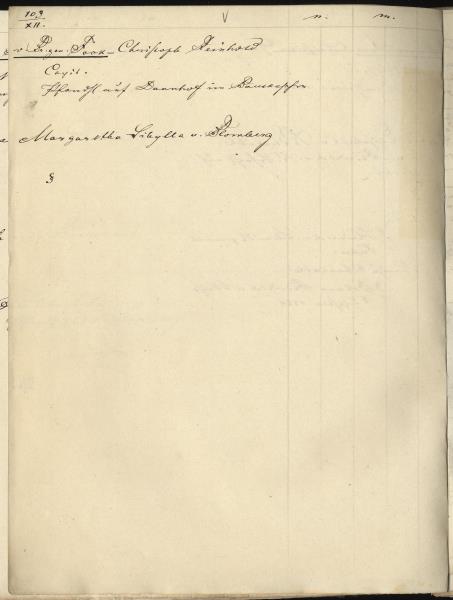 103
XII.
V n. m.
v. Bigen. Foock - Christoph Reinhold
Capit.
Pfandh. auf Dannhof im Bauskeschen
Margaretha Sibylla v. Blomberg
§